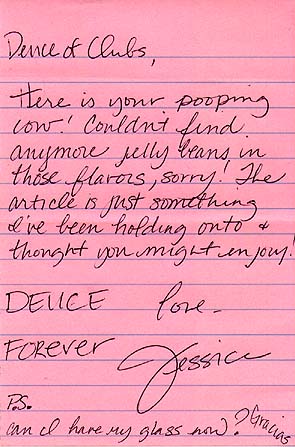 Deuce of Clubs,
Here is your pooping
cow! Couldn't find
anymore jelly beans in
those flavors, sorry! The
article is just something
I've been holding onto &
thought you might enjoy!
DEUCE love-
FOREVER Jessica
P.S.
can I have my glass now? Gracias